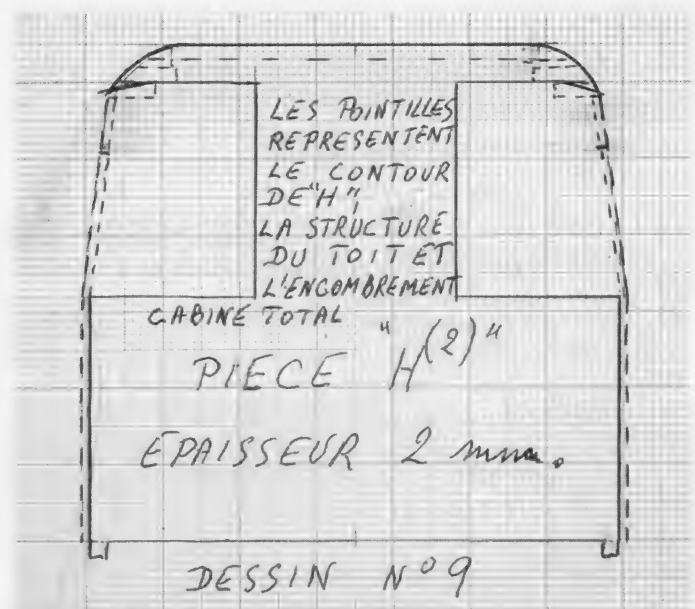 LES POINTILLES
REPRESENTENT
LE CONTOUR
DE "H",
LA STRUCTURE
DU TOIT ET
L'ENCOMBREMENT
CABINE TOTAL
PIECE "H(2)"
EPAISSEUR 2 mm.
DESSIN N°9